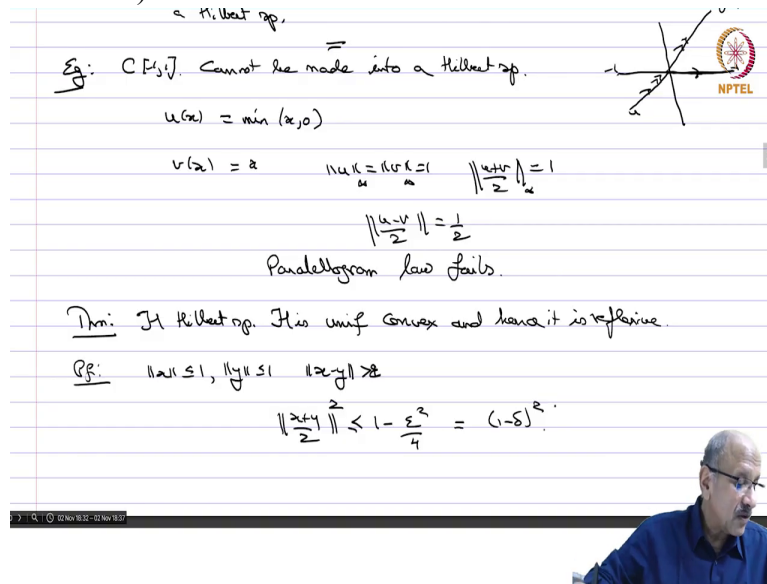 a Hilbert sp.
Eg: C[-1,1]. Cannot be made into a Hilbert sp.
u(x) = min (x,0)
v(x) = x ‖u‖∞ = ‖v‖∞ = 1 ‖(u+v)/2‖∞ = 1
‖(u-v)/2‖ = 1/2
Parallelogram law fails.
Thm: H Hilbert sp. H is unif convex and hence it is reflexive.
Pf: ‖x‖ ≤ 1, ‖y‖ ≤ 1 ‖x-y‖ > ε
‖(x+y)/2‖² < 1 - ε²/4 = (1-δ)².
-1
u
NPTEL
02 Nov 18:32 – 02 Nov 18:37